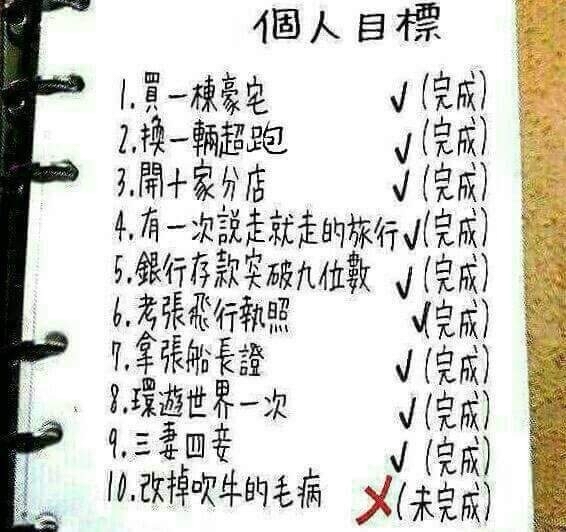 個人目標
1.買一棟豪宅 ✓(完成)
2.換一輛超跑 ✓(完成)
3.開十家分店 ✓(完成)
4.有一次說走就走的旅行✓(完成)
5.銀行存款突破九位數 ✓(完成)
6.考張飛行執照 ✓(完成)
7.拿張船長證 ✓(完成)
8.環遊世界一次 ✓(完成)
9.三妻四妾 ✓(完成)
10.改掉吹牛的毛病 ✗(未完成)